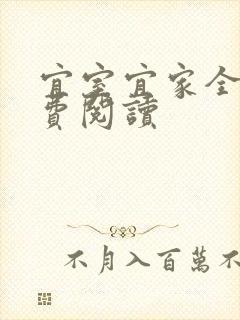 宜室宜家全
費閱讀
不月入百萬不